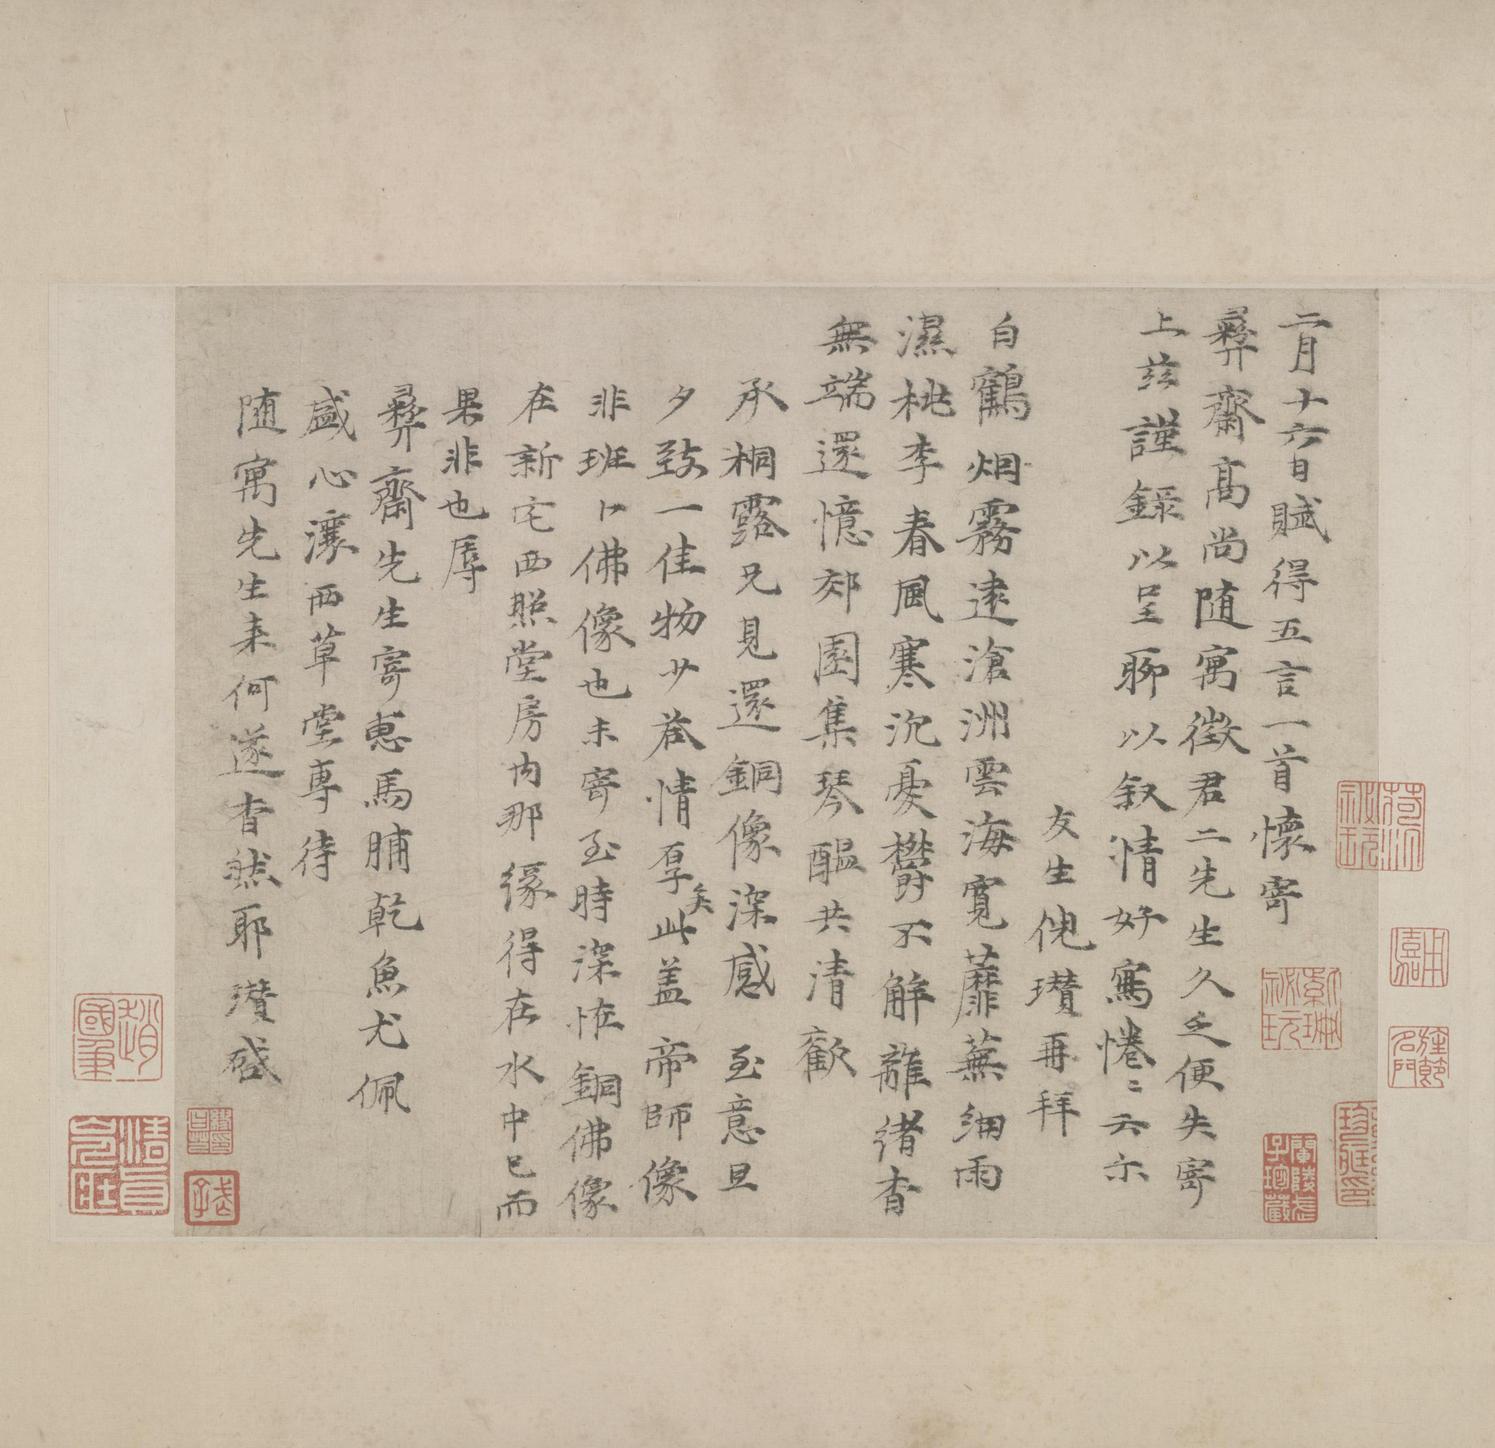 二月十六日賦得五言一首懷寄
彝齋高尚随寓徵君二先生久乏便失寄
上茲謹録以呈聊以叙情好寫惓〻云尒
友生倪瓚再拜
白鶴烟霧逺滄洲雲海寬蘼蕪細雨
濕桃李春風寒沉憂欝不解離緒杳
無端還憶郊園集琴醖共清歡
承桐露兄見還銅像深感至意旦
夕致一佳物少荅情厚矣此盖帝師像
非班卜佛像也未寄至時深恠銅佛像
在新宅西照堂房内那縁得在水中已而
果非也辱
彝齋先生寄惠馬脯乾魚尤佩
盛心瀼西草堂專待
随寓先生来何遂杳然耶瓚啓